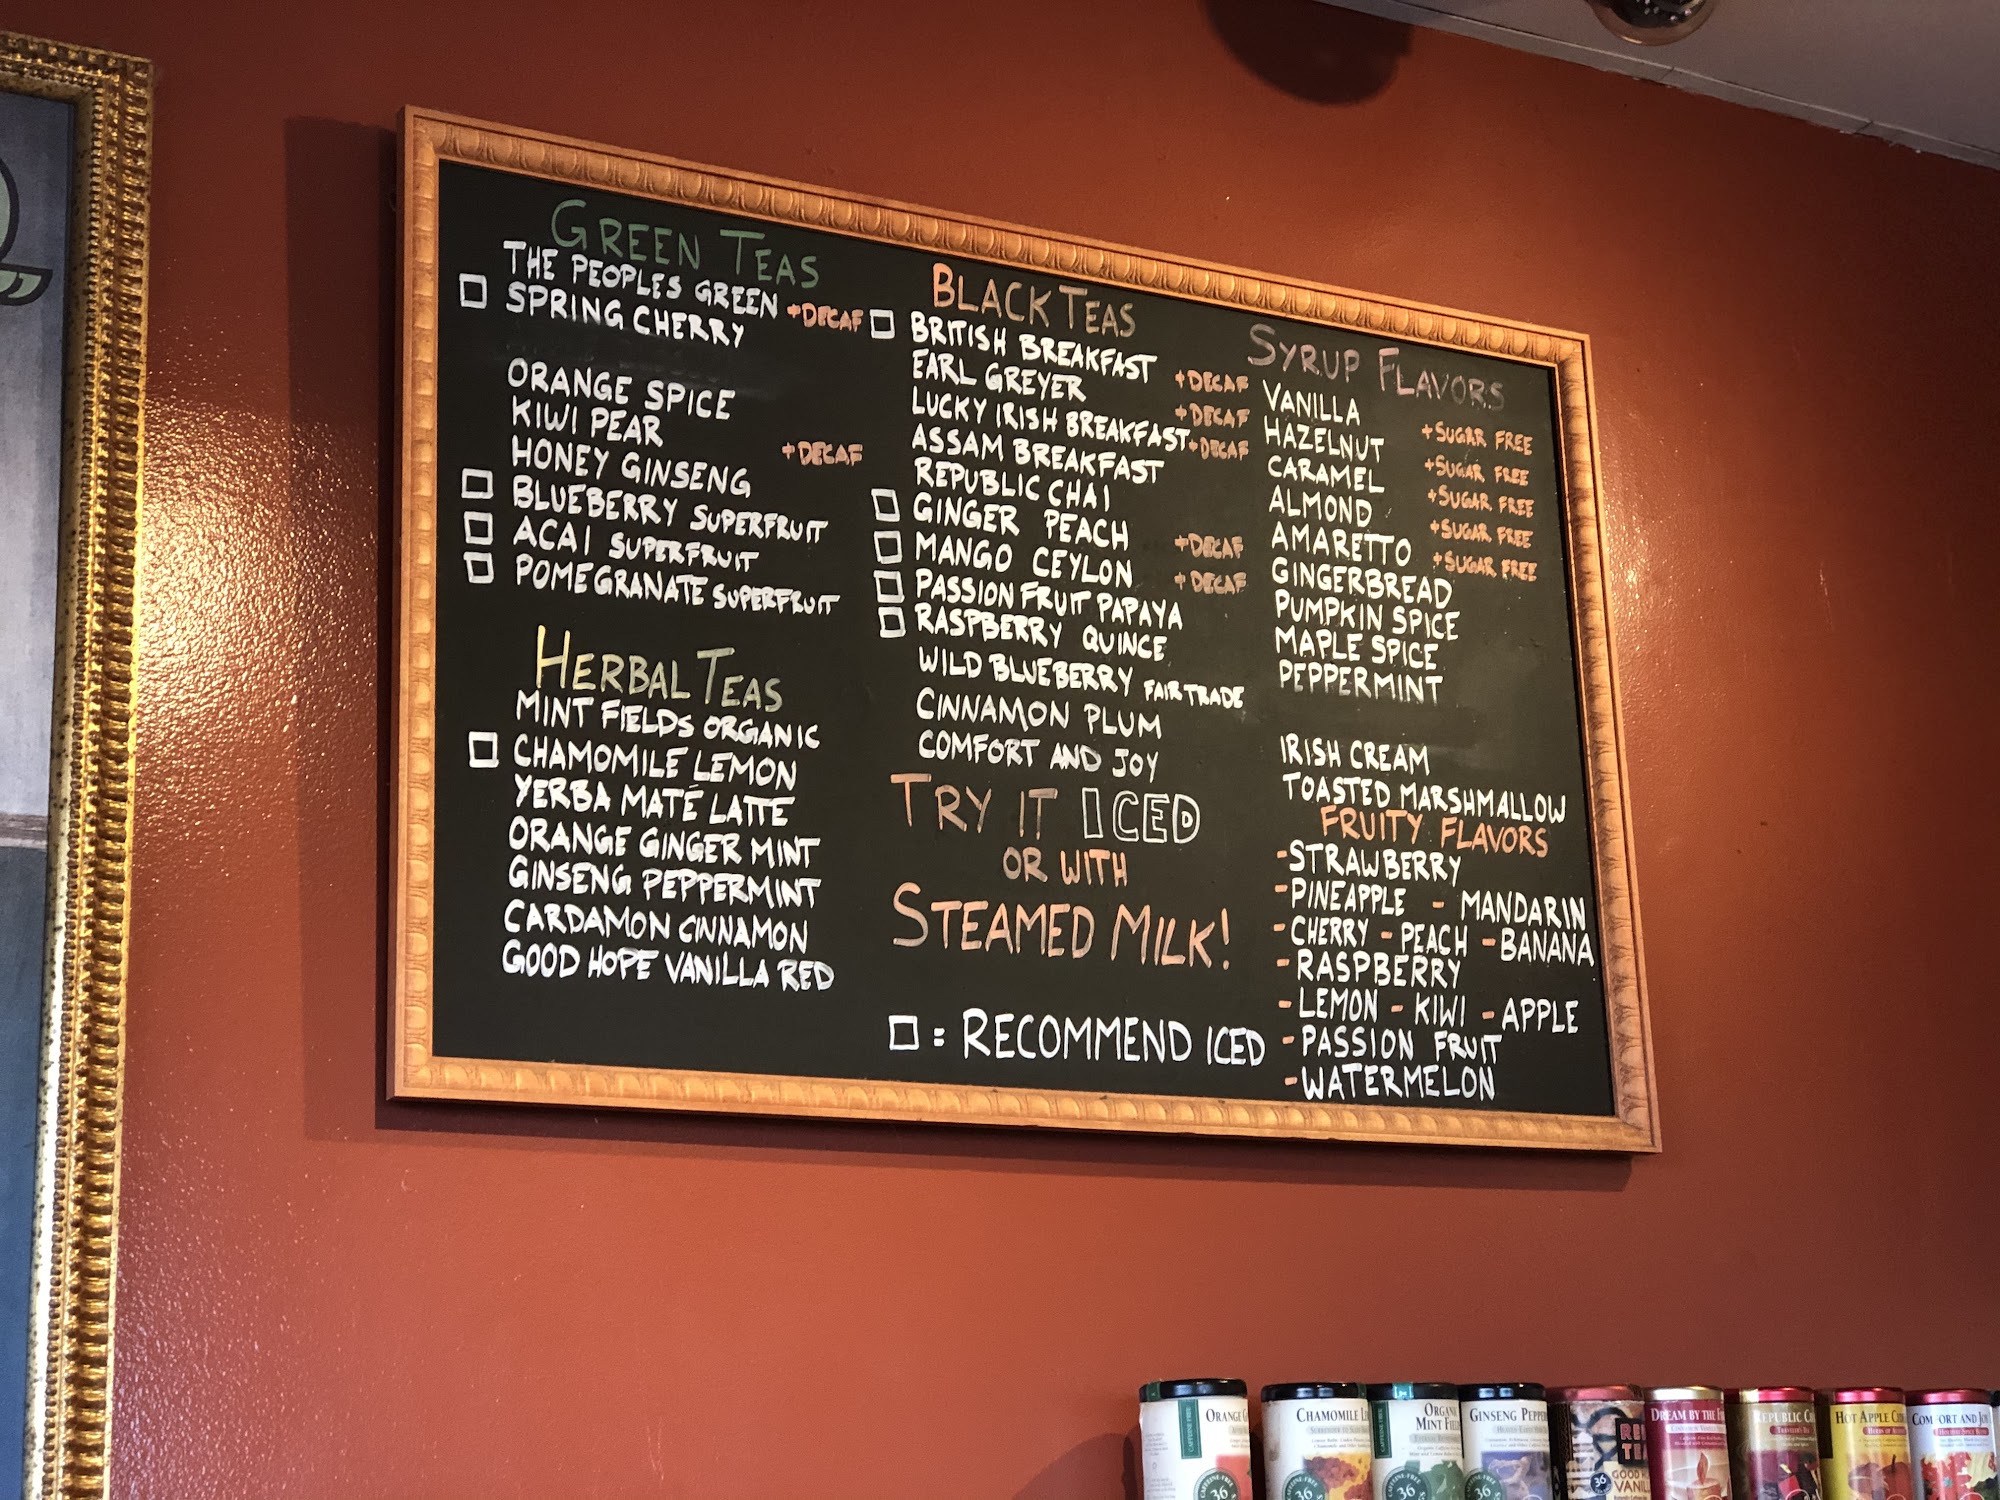 GREEN TEAS
THE PEOPLES GREEN +DECAF
SPRING CHERRY
ORANGE SPICE
KIWI PEAR
HONEY GINSENG +DECAF
BLUEBERRY SUPERFRUIT
ACAI SUPERFRUIT
POMEGRANATE SUPERFRUIT
HERBAL TEAS
MINT FIELDS ORGANIC
CHAMOMILE LEMON
YERBA MATÉ LATTE
ORANGE GINGER MINT
GINSENG PEPPERMINT
CARDAMON CINNAMON
GOOD HOPE VANILLA RED
BLACK TEAS
BRITISH BREAKFAST +DECAF
EARL GREYER +DECAF
LUCKY IRISH BREAKFAST +DECAF
ASSAM BREAKFAST
REPUBLIC CHAI
GINGER PEACH +DECAF
MANGO CEYLON +DECAF
PASSION FRUIT PAPAYA
RASPBERRY QUINCE
WILD BLUEBERRY FAIR TRADE
CINNAMON PLUM
COMFORT AND JOY
TRY IT ICED
OR WITH
STEAMED MILK!
= RECOMMEND ICED
SYRUP FLAVORS
VANILLA +SUGAR FREE
HAZELNUT +SUGAR FREE
CARAMEL +SUGAR FREE
ALMOND +SUGAR FREE
AMARETTO +SUGAR FREE
GINGERBREAD
PUMPKIN SPICE
MAPLE SPICE
PEPPERMINT
IRISH CREAM
TOASTED MARSHMALLOW
FRUITY FLAVORS
-STRAWBERRY
-PINEAPPLE - MANDARIN
-CHERRY - PEACH - BANANA
-RASPBERRY
-LEMON - KIWI - APPLE
-PASSION FRUIT
-WATERMELON
ORANGE
CHAMOMILE
MINT
GINSENG
DREAM BY THE
REPUBLIC
HOT APPLE
COMFORT AND
36
36
36
36
36